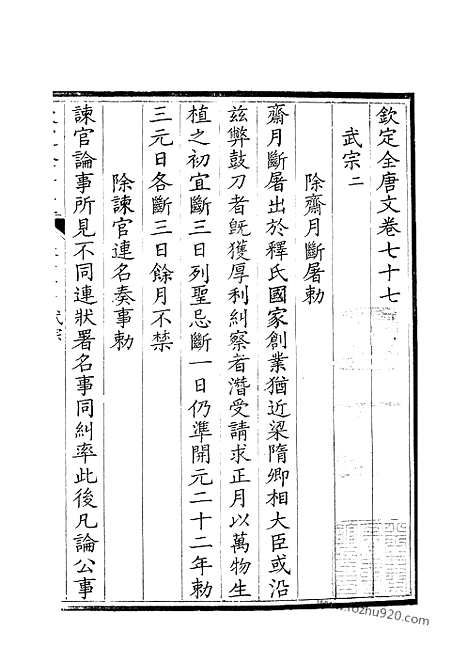 欽定全唐文卷七十七
武宗二
除齋月斷屠敕
齋月斷屠出於釋氏國家創業猶近梁隋卿相大臣或沿
茲弊鼓刀者旣獲厚利糾察者潛受請求正月以萬物生
植之初宜斷三日列聖忌斷一日仍準開元二十二年勅
三元日各斷三日餘月不禁
除諫官連名奏事勅
諫官論事所見不同連狀署名事同糾率此後凡論公事
www.fozhu920.com